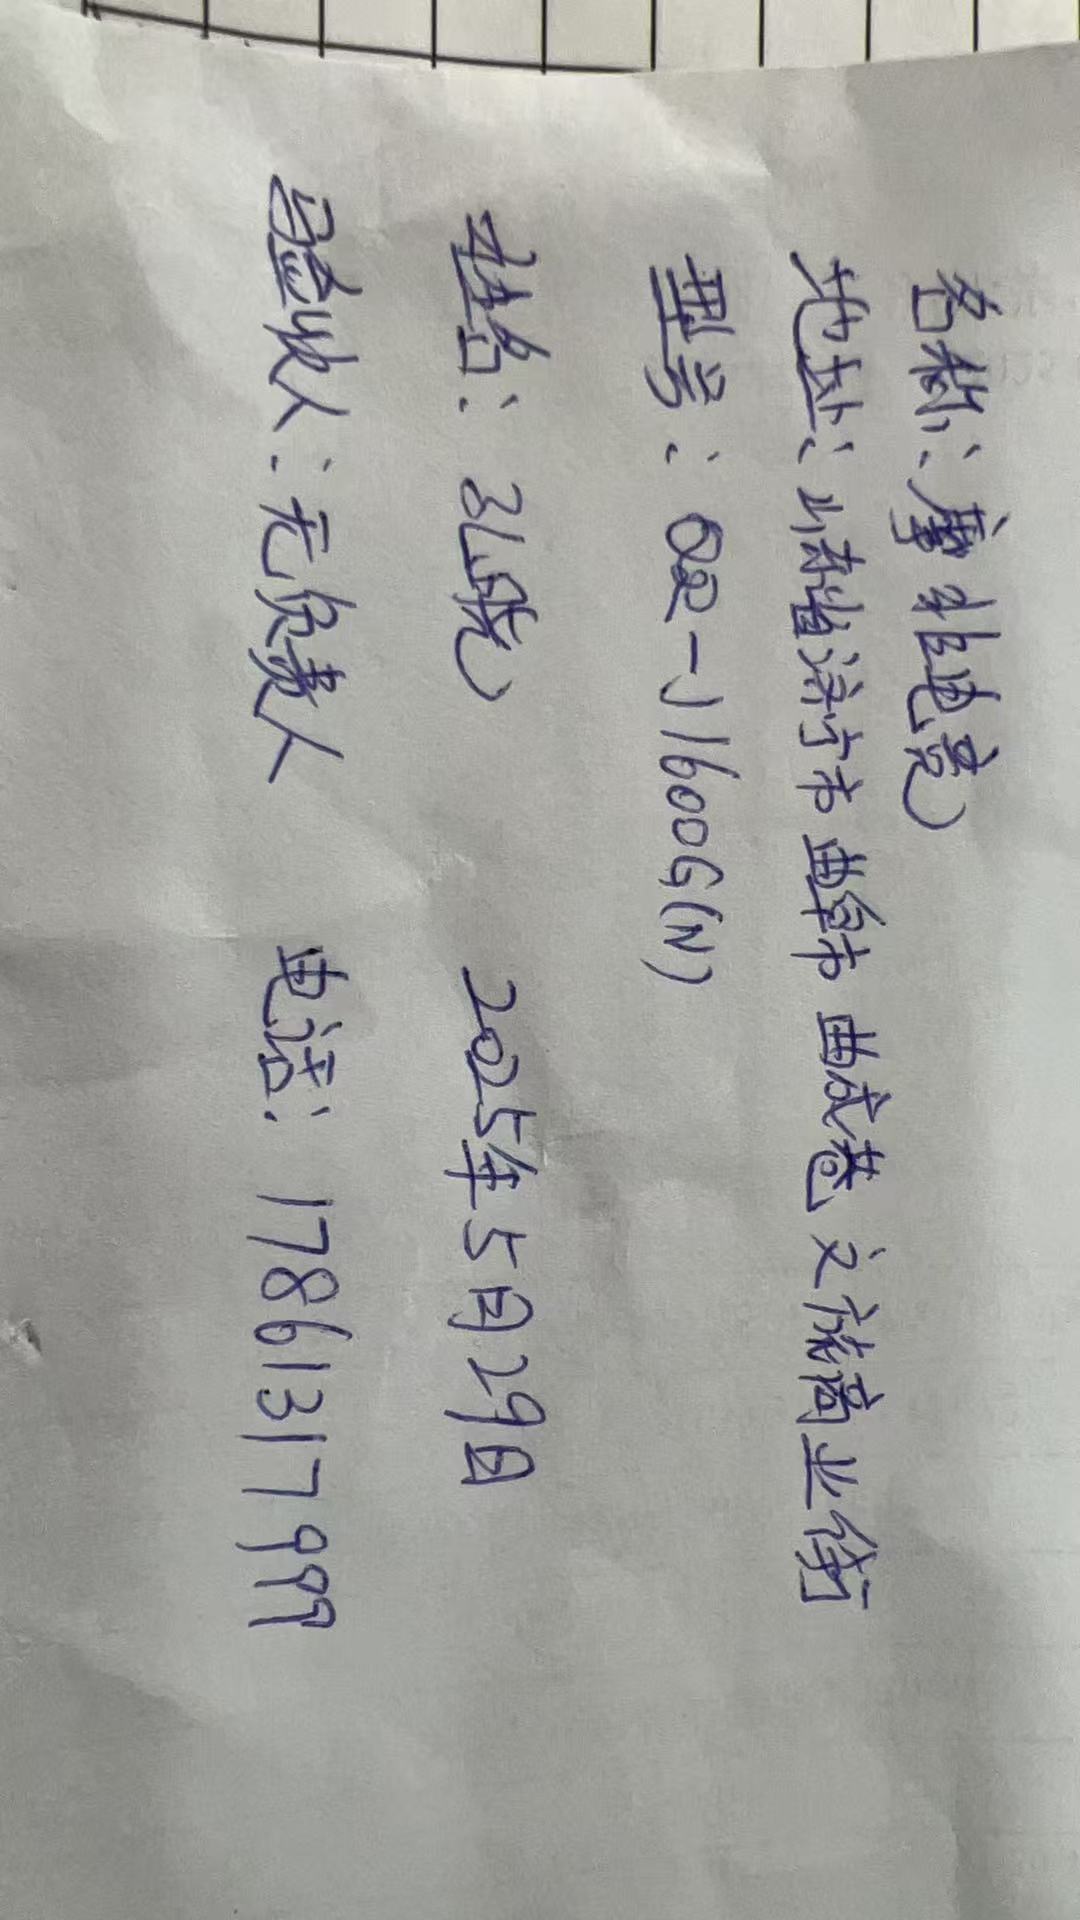 名称：摩杜电竞
地址：山东省济宁市曲阜市曲成巷文旅商业街
型号：QR-J1600G(N)
姓名：孔晓
2025年5月29日
验收人：无负责人
电话：17861317999